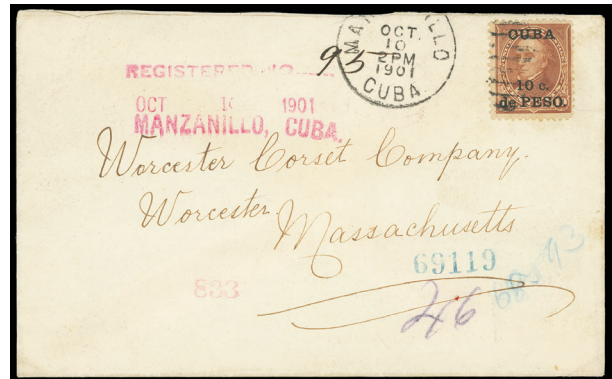 MANZANILLO
OCT.
10
2PM
1901
CUBA
CUBA
10 c.
de PESO.
REGISTERED NO.
93
OCT 10 1901
MANZANILLO, CUBA.
Worcester Corset Company.
Worcester
Massachusetts
69119
833
46